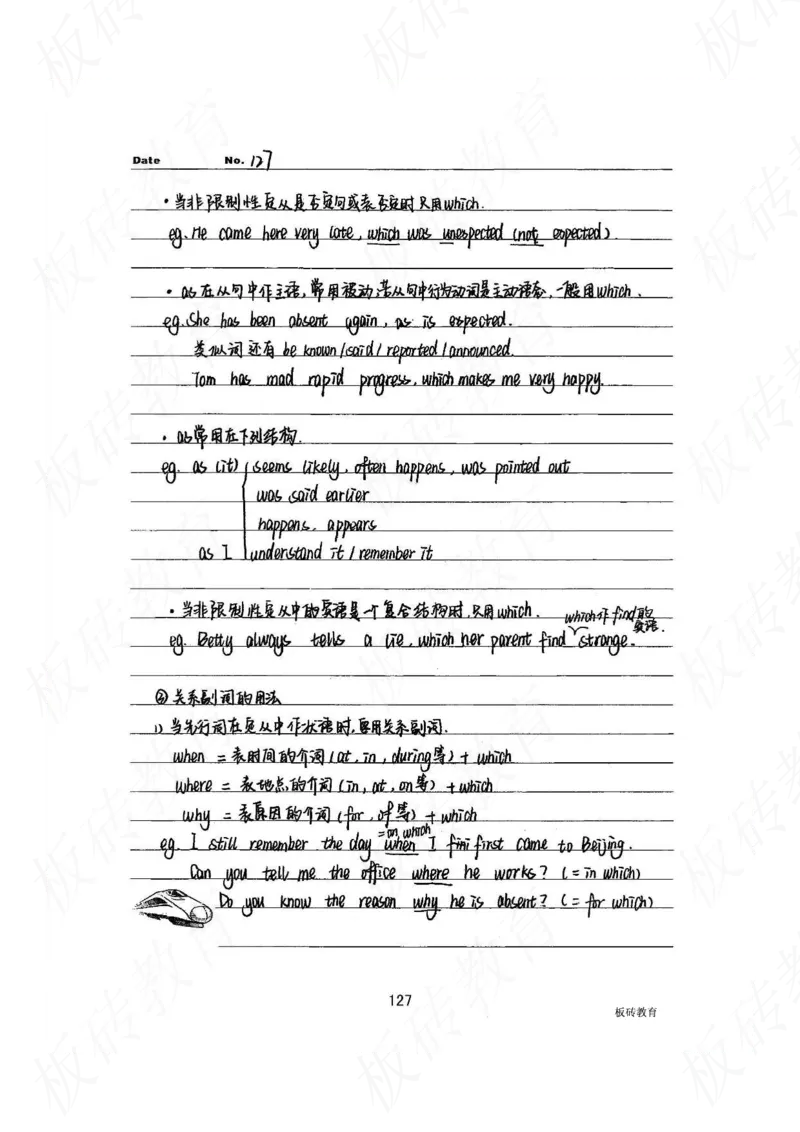 Date No. 127
·当非限制性定从是否定句或表否定时只用which.
eg. He came here very late, which was unexpected (not expected).
·as在从句中作主语,常用被动;若从句中行为动词是主动语态,一般用which.
eg. She has been absent again, as is expected.
类似词还有 be known / said / reported / announced.
Tom has mad rapid progress, which makes me very happy.
·as常用在下列结构.
eg. as (it) seems likely, often happens, was pointed out
was said earlier
happens. appears
as I understand it / remember it
·当非限制性定从中的宾语是一个复合结构时,只用which. which作find的宾语.
eg. Betty always tells a lie, which her parent find strange.
②关系副词的用法
1) 当先行词在定从中作状语时,要用关系副词.
when = 表时间的介词 (at, in, during等) + which
where = 表地点的介词 (in, at, on等) + which
why = 表原因的介词 (for, of等) + which
=on which
eg. I still remember the day when I first came to Beijing.
Can you tell me the office where he works? (= in which)
Do you know the reason why he is absent? (= for which)
127
板砖教育